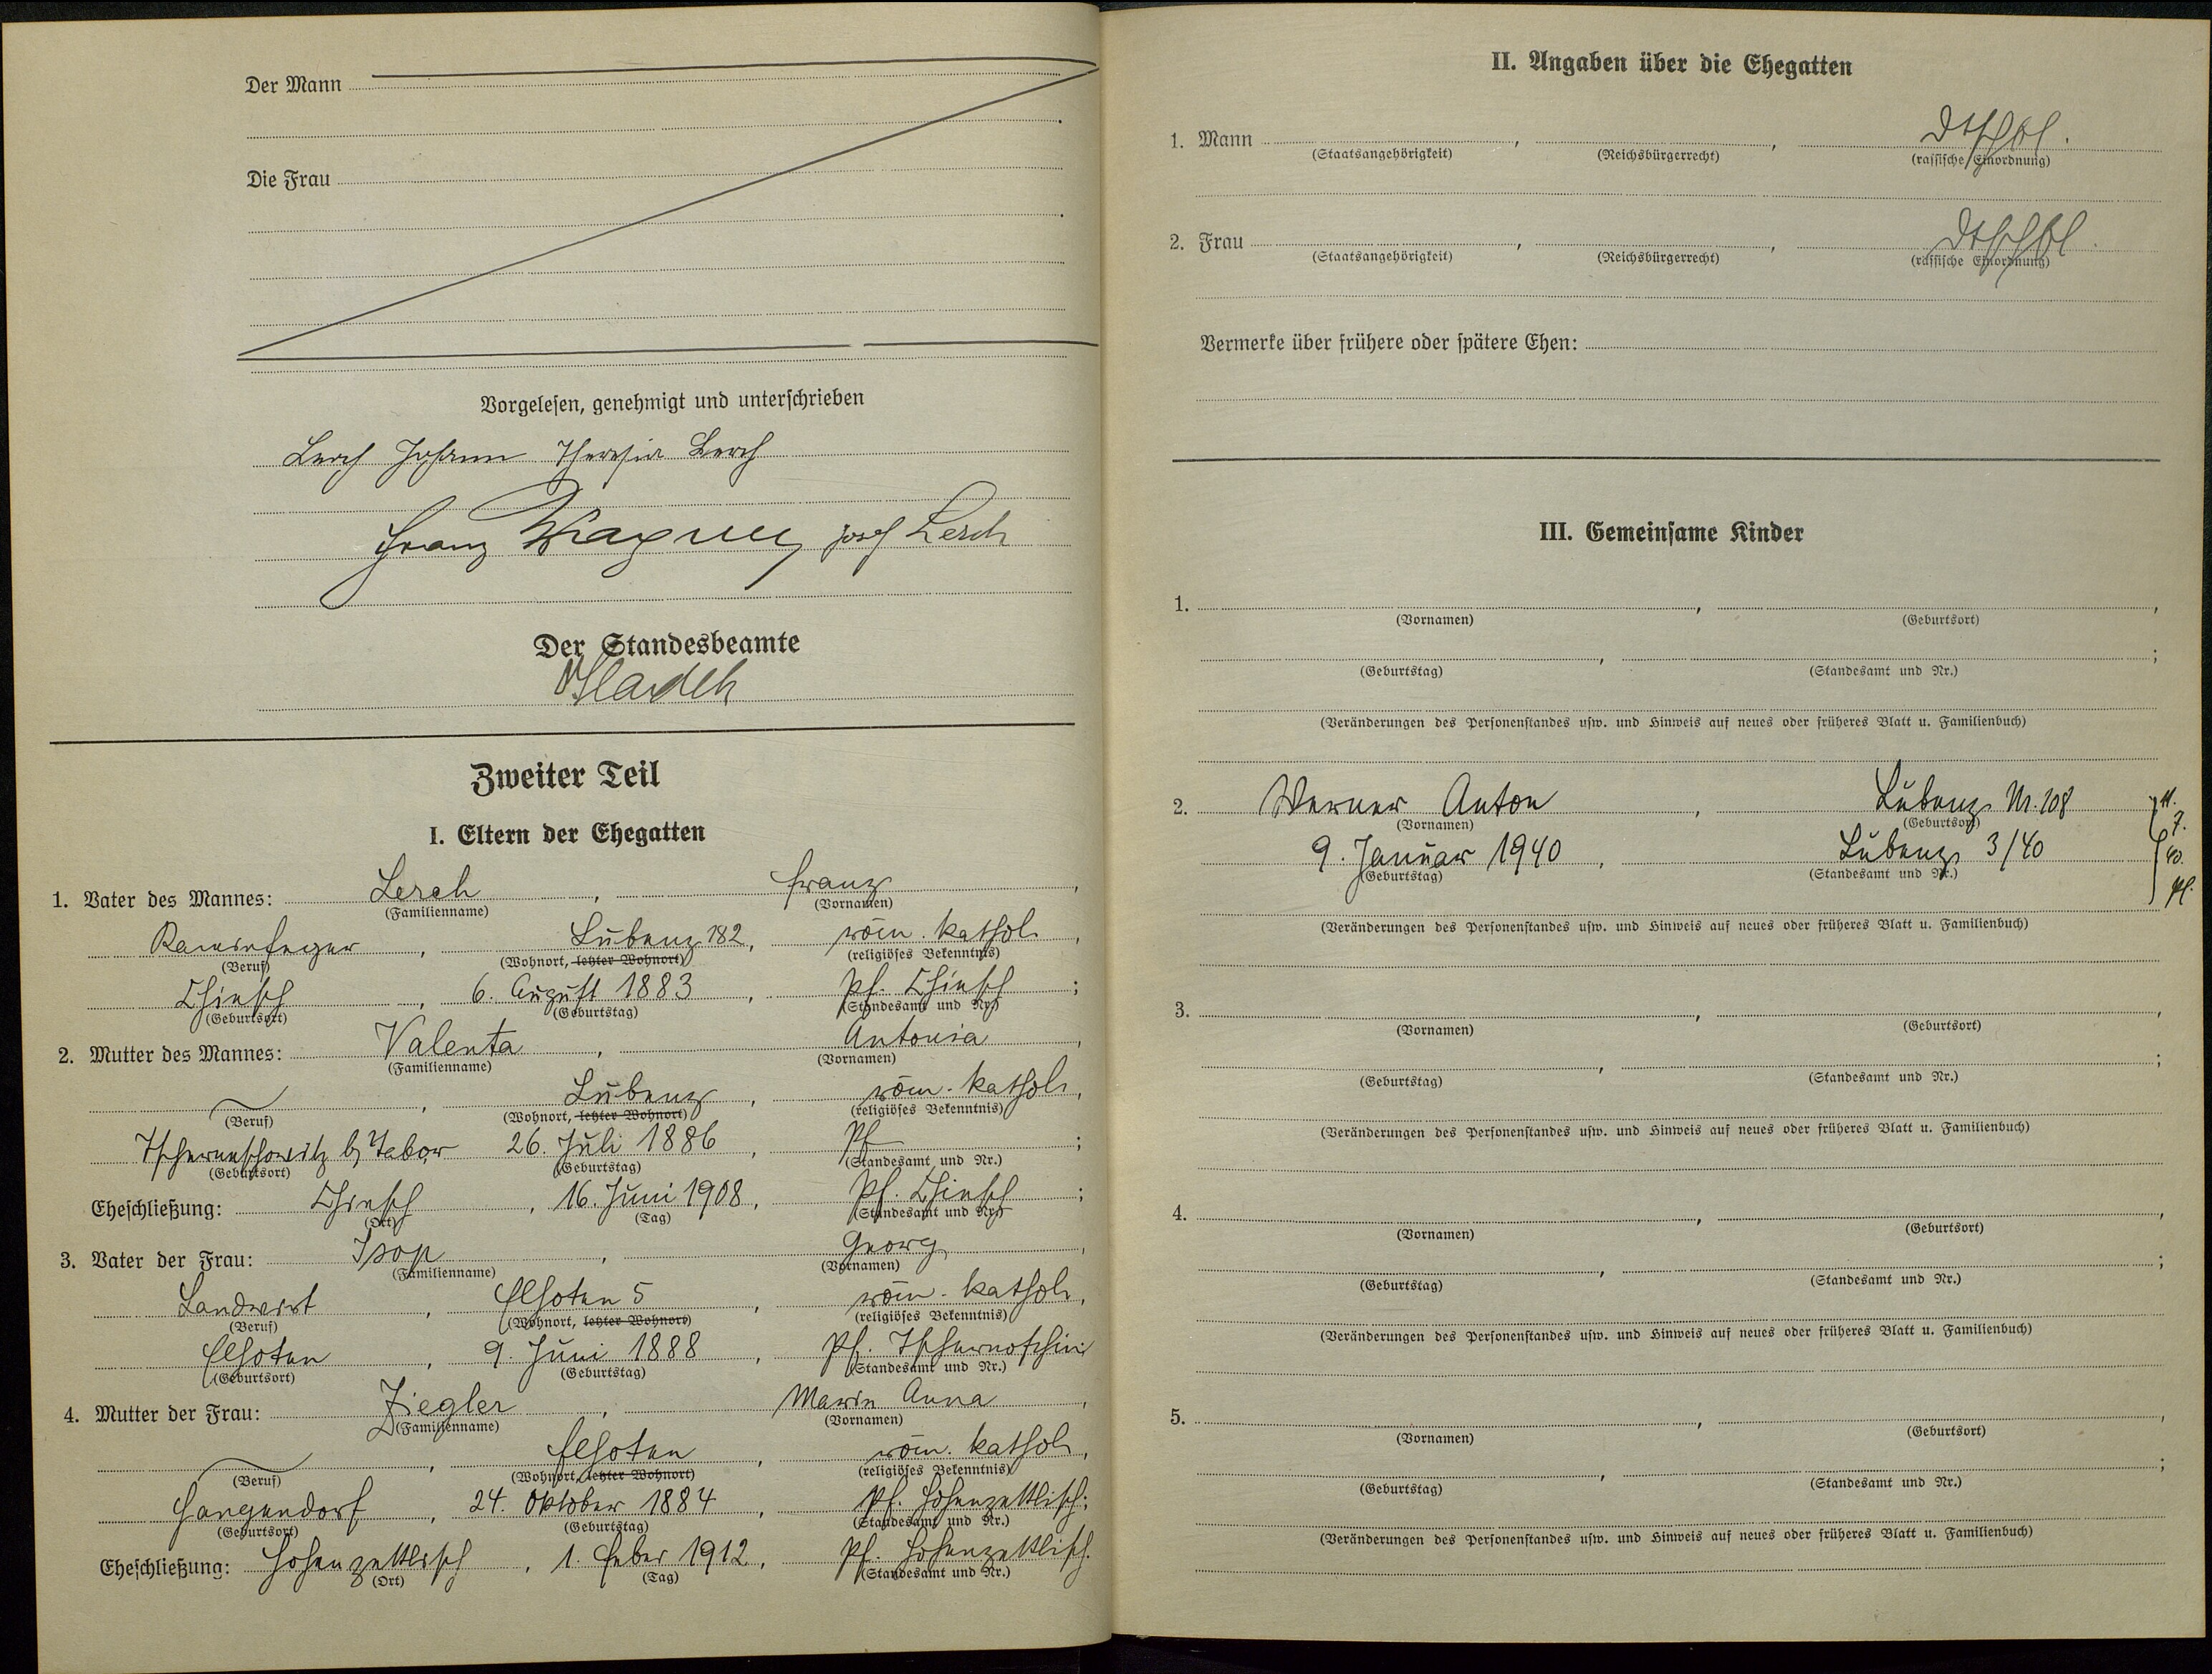 Der Mann
Die Frau
Vorgelesen, genehmigt und unterschrieben
Lerch Johann Theresia Lerch
Franz Wagner Josef Lerch
Der Standesbeamte
Zweiter Teil
I. Eltern der Ehegatten
1. Vater des Mannes: Lerch, Franz,
(Familienname) (Vornamen)
Kaminfeger, Lubenz 182, röm. kathol.,
(Beruf) (Wohnort, letzter Wohnort) (religiöses Bekenntnis)
Chiesch, 6. August 1883, Pf. Chiesch;
(Geburtsort) (Geburtstag) (Standesamt und Nr.)
2. Mutter des Mannes: Valenta, Antonia,
(Familienname) (Vornamen)
Lubenz, röm. kathol.,
(Beruf) (Wohnort, letzter Wohnort) (religiöses Bekenntnis)
Tschernschowitz b/ Tabor 26. Juli 1886, Pf;
(Geburtsort) (Geburtstag) (Standesamt und Nr.)
Eheschließung: Chiesch, 16. Juni 1908, Pf. Chiesch;
(Ort) (Tag) (Standesamt und Nr.)
3. Vater der Frau: Isop, Georg,
(Familienname) (Vornamen)
Landwirt, Elhoten 5, röm. kathol.,
(Beruf) (Wohnort, letzter Wohnort) (religiöses Bekenntnis)
Elhoten, 9. Juni 1888, Pf. Tschernoschin;
(Geburtsort) (Geburtstag) (Standesamt und Nr.)
4. Mutter der Frau: Ziegler, Maria Anna,
(Familienname) (Vornamen)
Elhoten, röm. kathol.,
(Beruf) (Wohnort, letzter Wohnort) (religiöses Bekenntnis)
Hangendorf, 24. Oktober 1884, Pf. Hohenzettlisch;
(Geburtsort) (Geburtstag) (Standesamt und Nr.)
Eheschließung: Hohenzettlisch, 1. Feber 1912, Pf. Hohenzettlisch.
(Ort) (Tag) (Standesamt und Nr.)
II. Angaben über die Ehegatten
1. Mann, , dtschbl.
(Staatsangehörigkeit) (Reichsbürgerrecht) (rassische Einordnung)
2. Frau, , dtschbl.
(Staatsangehörigkeit) (Reichsbürgerrecht) (rassische Einordnung)
Vermerke über frühere oder spätere Ehen:
III. Gemeinsame Kinder
1. , ,
(Vornamen) (Geburtsort)
, ;
(Geburtstag) (Standesamt und Nr.)
(Veränderungen des Personenstandes usw. und Hinweis auf neues oder früheres Blatt u. Familienbuch)
2. Werner Anton, Lubenz Nr. 108 11.
(Vornamen) (Geburtsort) 7.
9. Januar 1940, Lubenz 3/40 40.
(Geburtstag) (Standesamt und Nr.)
(Veränderungen des Personenstandes usw. und Hinweis auf neues oder früheres Blatt u. Familienbuch)
3. , ,
(Vornamen) (Geburtsort)
, ;
(Geburtstag) (Standesamt und Nr.)
(Veränderungen des Personenstandes usw. und Hinweis auf neues oder früheres Blatt u. Familienbuch)
4. , ,
(Vornamen) (Geburtsort)
, ;
(Geburtstag) (Standesamt und Nr.)
(Veränderungen des Personenstandes usw. und Hinweis auf neues oder früheres Blatt u. Familienbuch)
5. , ,
(Vornamen) (Geburtsort)
, ;
(Geburtstag) (Standesamt und Nr.)
(Veränderungen des Personenstandes usw. und Hinweis auf neues oder früheres Blatt u. Familienbuch)